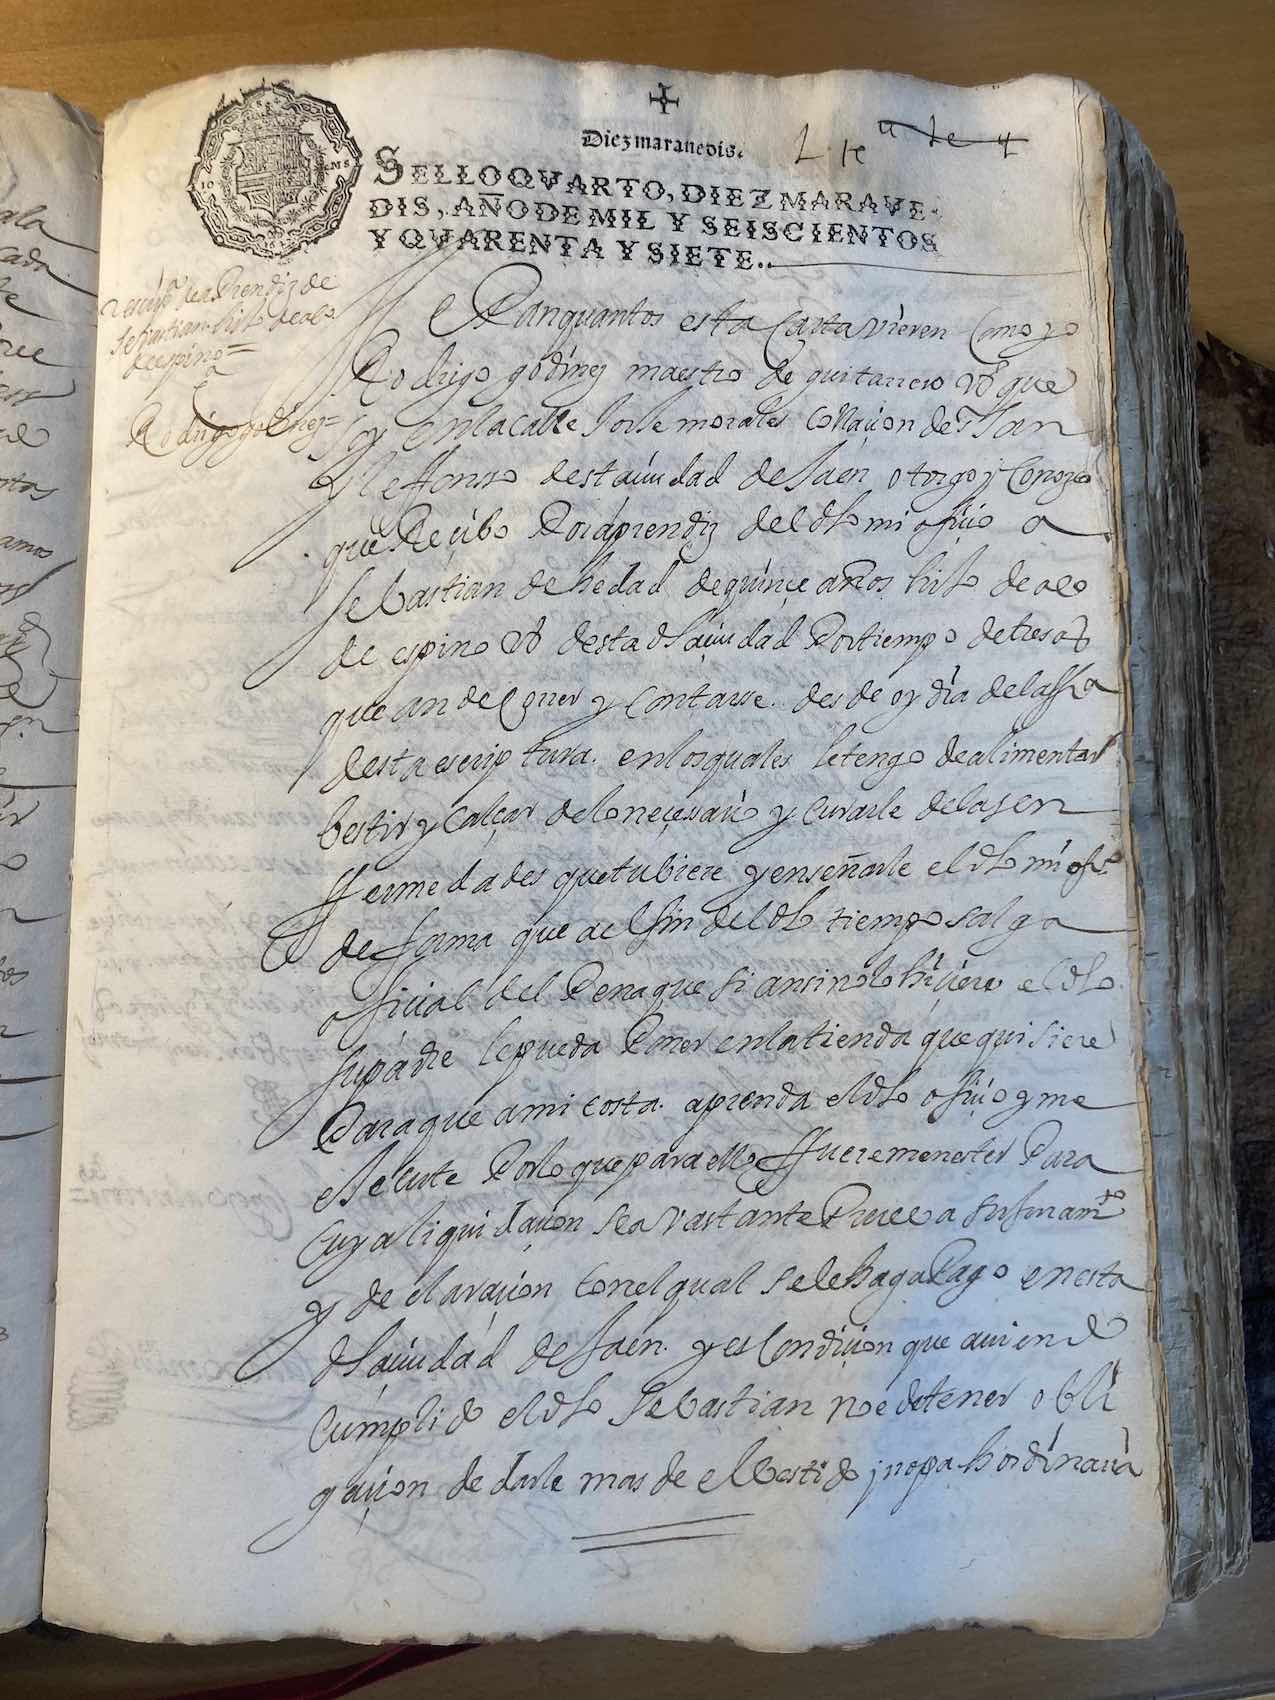 Diez maravedis.
SELLO QVARTO, DIEZ MARAVE-
DIS, AÑO DE MIL Y SEISCIENTOS
Y QVARENTA Y SIETE.
aprendiz de
sebastian hijo de alo
de espino =
Ca
Rodrigo godinez =
Sepan quantos esta Carta vieren Como yo
Rodrigo godinez maestro de guitarrero vº que
soy en la calle Jorje morales collaçion de san
yllefonso desta çiudad de Jaen otorgo y Conozco
que Reçibo Por aprendiz del dho mi ofiçio a
sebastian de hedad de quinçe años hijo de alo
de espino vº desta dha çiudad Por tiempo de tres aºs
que an de Correr y contarse desde oy dia de la ffha
desta escriptura. en los quales le tengo de alimentar
bestir y calçar de lo neçessario y curarle de las en
ffermedades que tubiere y enseñarle el dho mi ofiº
de forma que al fin del dho tiempo salga
ofiçial del Pena que si ansi no lo hiçiere el dho
su padre le pueda Poner en la tienda que quisiere
Para que a mi costa aprenda el dho ofiçio y me
eJecute Por lo que para ello ffuere menester Para
cuya liquidaçion sea vastante Prueva su Juramtº
y declaraçion con el qual se le haga Pago en esta
dha çiudad de Jaen. y es Condiçion que aviendo
cumplido el dho sebastian no e de tener obli
gaçion de darle mas de el bestido y ropa hordinaria